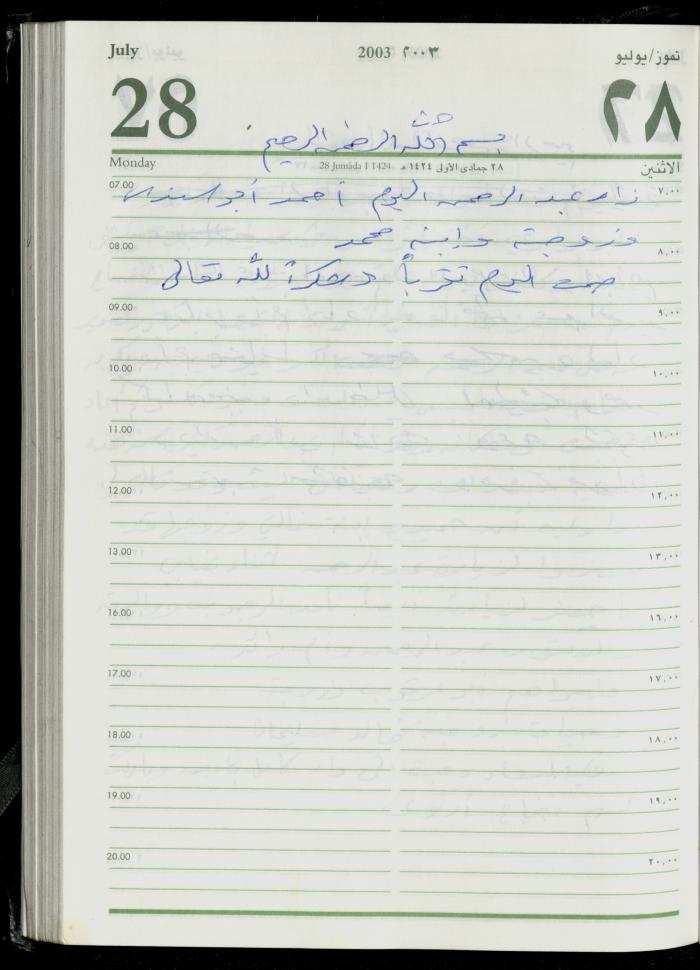 July 2003 ٢٠٠٣ تموز/يوليو
28 ٢٨
بسم الله الرحمن الرحيم
Monday 28 Jumâda I 1424 ٢٨ جمادى الأولى ١٤٢٤ هـ الاثنين
07.00 زار عبد الرحمن اليوم أحمد أبو السندس ٧,٠٠
وزوجته وابنه محمد
08.00 ٨,٠٠
صمت اليوم تقرباً وشكراً لله تعالى
09.00 ٩,٠٠
10.00 ١٠,٠٠
11.00 ١١,٠٠
12.00 ١٢,٠٠
13.00 ١٣,٠٠
16.00 ١٦,٠٠
17.00 ١٧,٠٠
18.00 ١٨,٠٠
19.00 ١٩,٠٠
20.00 ٢٠,٠٠